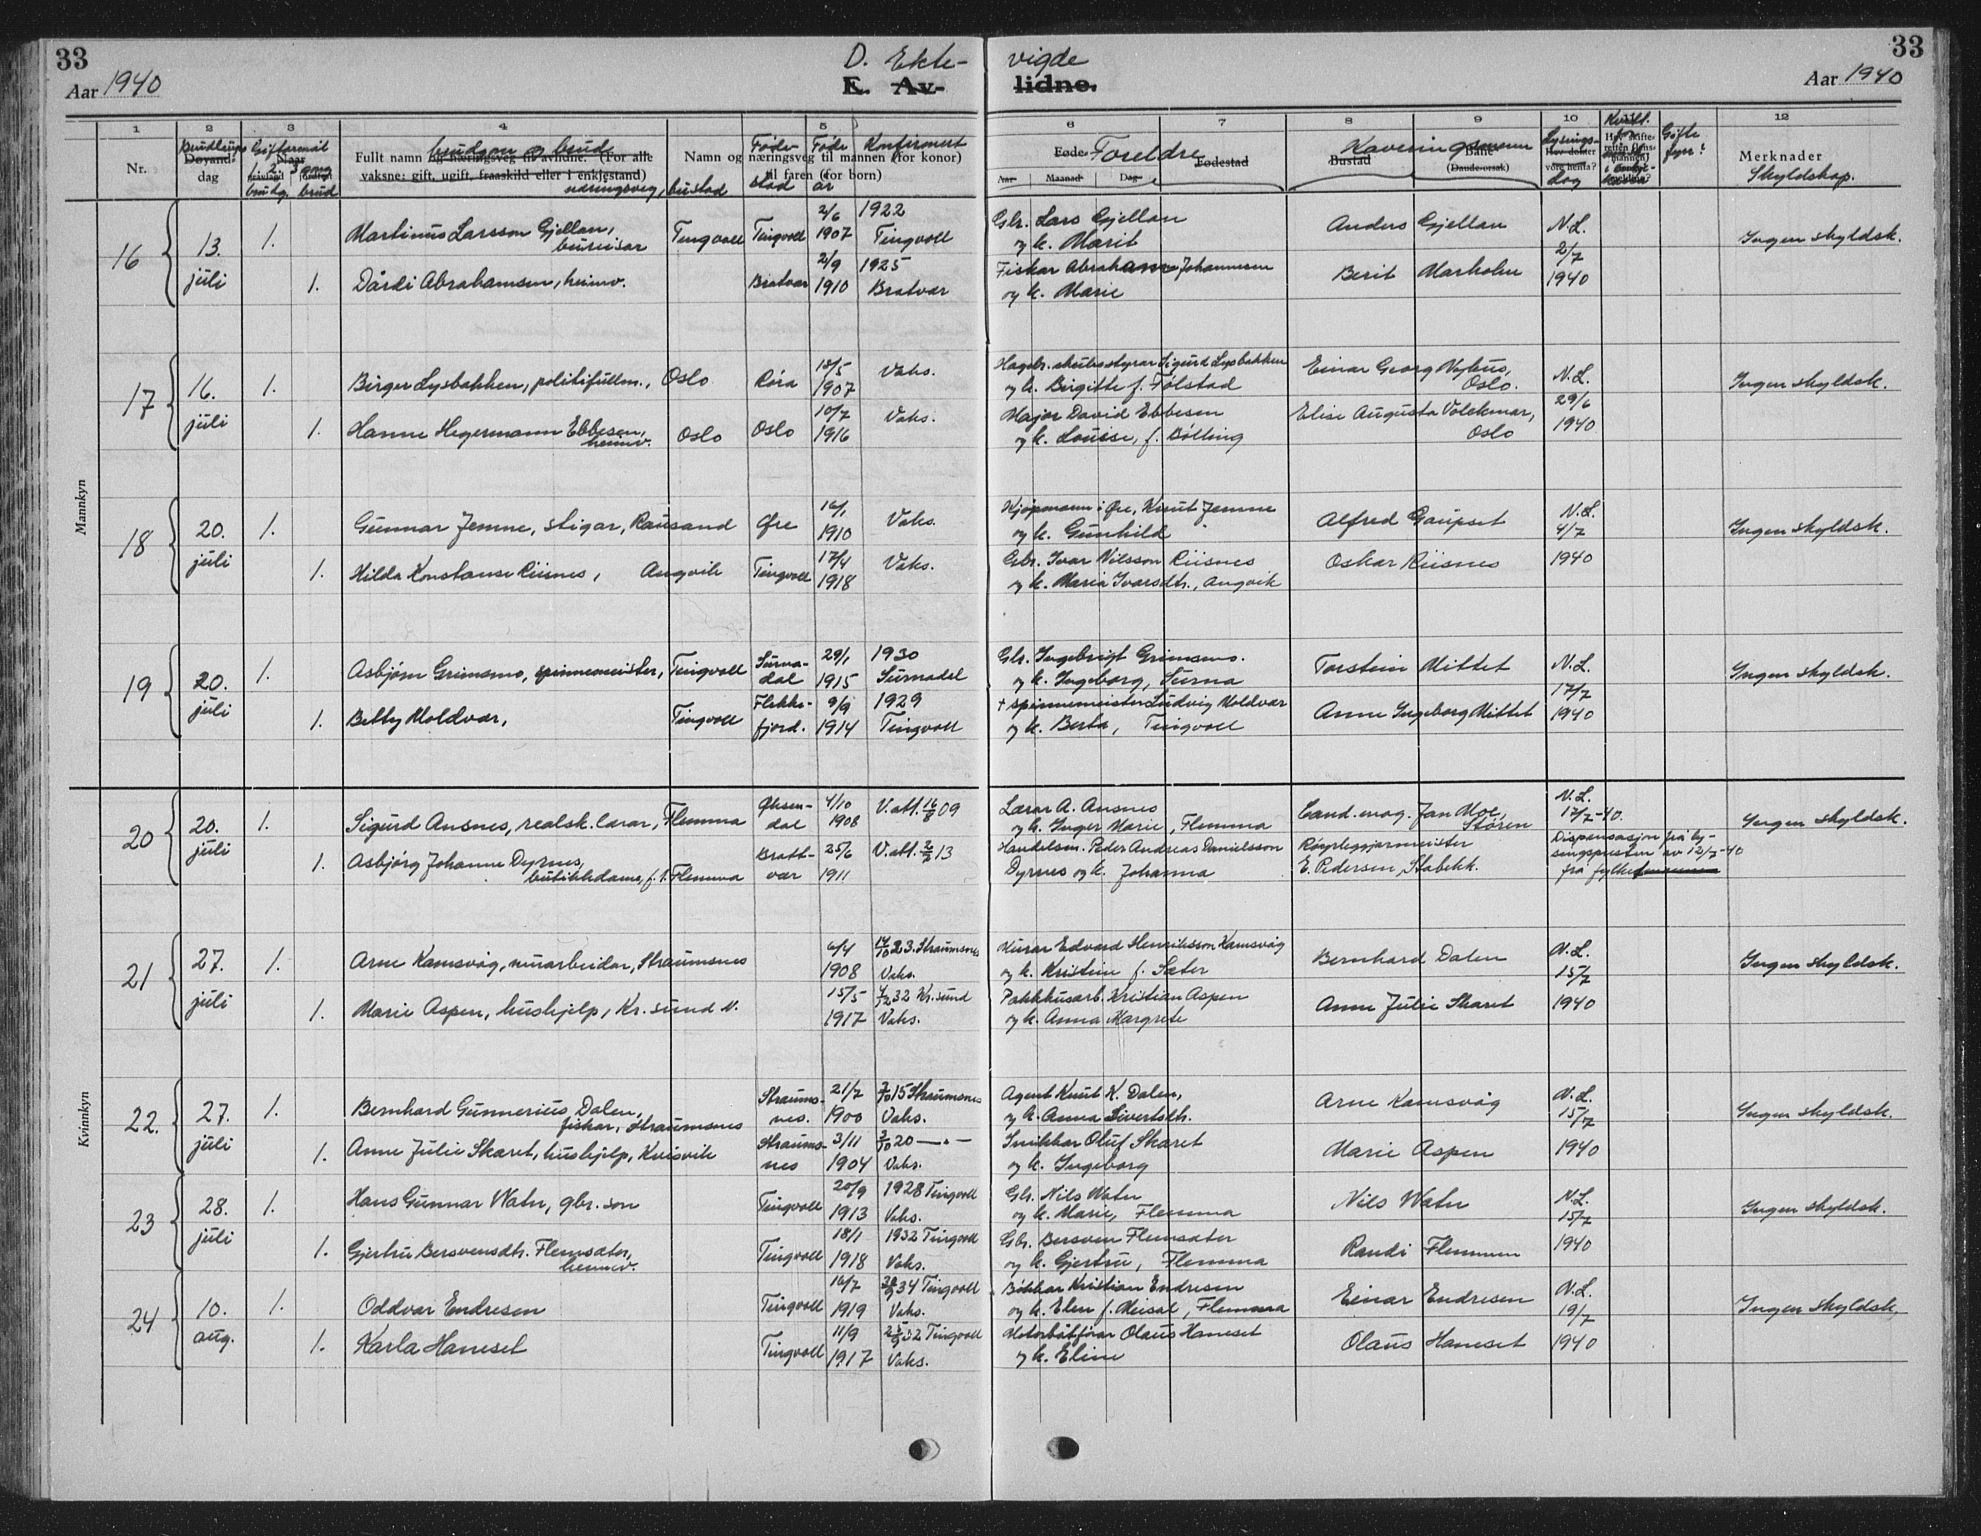 33
Aar 1940
D. Ekte-
vigde
E. Av-
lidne.
33
Aar 1940
1 2 3 4 5 6 7 8 9 10 12
Nr.
Brudlaups
Døyand-
dag
Giftarmål
Naar
gong
brudg. brud
brudgom og brud
Fullt namn og næringsveg til avlidne. (For alle
vaksne: gift, ugift, fraaskild eller i enkjestand)
næringsveg, bustad
Namn og næringsveg til mannen (for konor)
til faren (for born)
Føde-
stad
Føde
år
Konfirmert
Foreldre
Føde-
Aar Maanad Dag
Fødestad
Kaveringsmenn
Bustad
Bane
(Daude-orsak)
Lysings-
dag
Hev dokter
vore henta?
Gifte
fyrr?
Merknader
Skyldskap.
Mannkyn
Kvinnkyn
16
13.
juli
1.
Martinus Larsson Gjellan,
bureisar
Tingvoll
Tingvoll
2/6
1907
1922
Tingvoll
Gbr. Lars Gjellan
og k. Marit
Anders Gjellan
N.L.
2/7
1940
Ingen skyldsk.
1.
Dårdi Abrahamsen, heimv.
Bratvær
2/9
1910
1925
Bratvær
Fiskar Abraham Johannesen
og k. Marie
Berit Marholm
17
16.
juli
1.
Birger Lysbakken, politifullm.,
Oslo
Røra
13/5
1907
Vaks.
Hagebr.skulestyrar Sigurd Lysbakken
og k. Birgitte f. Følstad
Einar Georg Nybus,
Oslo.
N.L.
29/6
1940
Ingen skyldsk.
1.
Hanne Hegermann Ebbesen,
heimv.
Oslo
Oslo
10/7
1916
Vaks.
Major David Ebbesen
og k. Louise, f. Bølling
Elise Augusta Volckmar,
Oslo
18
20.
juli
1.
Gunnar Jemne, stigar, Rausand
Øre
16/1
1910
Vaks.
Kjøpmann i Øre, Knut Jemne
og k. Gunhild
Alfred Gaupset
N.L.
4/7
1940
Ingen skyldsk.
1.
Hilda Konstanse Riisnes,
Angvik
Tingvoll
17/4
1918
Vaks.
Gbr. Ivar Nilsson Riisnes
og k. Maria Ivarsdtr., Angvik
Oskar Riisnes
19
20.
juli
1.
Asbjørn Grimsmo, spinnemeister,
Tingvoll
Surna-
dal
29/1
1915
1930
Surnadal
Gbr. Ingebrigt Grimsmo.
og k. Ingeborg, Surna
Torstein Mittet
N.L.
17/7
1940
Ingen skyldsk.
1.
Betty Moldvær,
Tingvoll
Flekke-
fjord.
9/9
1914
1929
Tingvoll
+ spinnemeister Ludvig Moldvær
og k. Berta, Tingvoll
Anne Ingeborg Mittet
20
20.
juli
1.
Sigurd Ansnes, realsk. lærar, Flemma
Øksen-
dal
4/10
1908
V.att. 16/8 09
Lærar A. Ansnes
og k. Inger Marie, Flemma
Cand. mag. Jan Moe,
Støren
N.L.
17/7-40.
Ingen skyldsk.
1.
Asbjørg Johanne Dyrnes,
butikkdame, f.t. Flemma
Bratt-
vær
25/6
1911
V.att. 2/2 13
Handelsm. Peder Andreas Danielsson
Dyrnes og k. Johanna
Røyrleggjarmeister
E. Pedersen, Stabekk.
Dispensasjon frå ly-
singsplikten av 12/7-40
frå fylkes
21
27.
juli
1.
Arne Kamsvåg, murarbeidar, Straumsnes
6/4
1908
14/10 23. Straumsnes
Vaks.
Murar Edvard Henriksson Kamsvåg
og k. Kristine f. Sæter
Bernhard Dalen
N.L.
15/7
1940
Ingen skyldsk.
1.
Marie Aspen, hushjelp, Kr.sund N.
15/5
1917
4/12 32 Kr.sund
Vaks.
Pakkhusarb. Kristian Aspen
og k. Anna Margrete
Anne Julie Skaret
22.
27.
juli
1.
Bernhard Gunnerius Dalen,
fiskar, Straumsnes
Straums-
nes.
21/7
1900
3/10 15 Straumsnes
Vaks.
Agent Knut K. Dalen,
og k. Anna Sivertsdtr.
Arne Kamsvåg
N.L.
15/7
1940
Ingen skyldsk.
1.
Anne Julie Skaret, hushjelp, Kvisvik
Straums-
nes
3/11
1904
3/10 20 — „ —
Vaks.
Snikkar Oluf Skaret
og k. Ingeborg
Marie Aspen
23
28.
juli
1.
Hans Gunnar Watn, gbr. son
Tingvoll
20/9
1913
1928 Tingvoll
Vaks.
Gbr. Nils Watn
og k. Marie, Flemma
Nils Watn
N.L.
15/7
1940
Ingen skyldsk.
1.
Gjertru Bersvensdtr. Flemsæter,
heimv.
Tingvoll
18/1
1918
1932 Tingvoll
Vaks.
Gbr. Bersven Flemsæter
og k. Gjertru, Flemma
Randi Flemmen
24
10.
aug.
1.
Oddvar Endresen
Tingvoll
16/7
1919
34 Tingvoll
Vaks.
Bøkkar Kristian Endresen
og k. Elen f. Meisal, Flemma
Einar Endresen
N.L.
19/7
1940
Ingen skyldsk.
1.
Karla Hanset
Tingvoll
11/9
1917
32 Tingvoll
Vaks.
Motorbåtførar Olaus Hanset
og k. Eline
Olaus Hanset